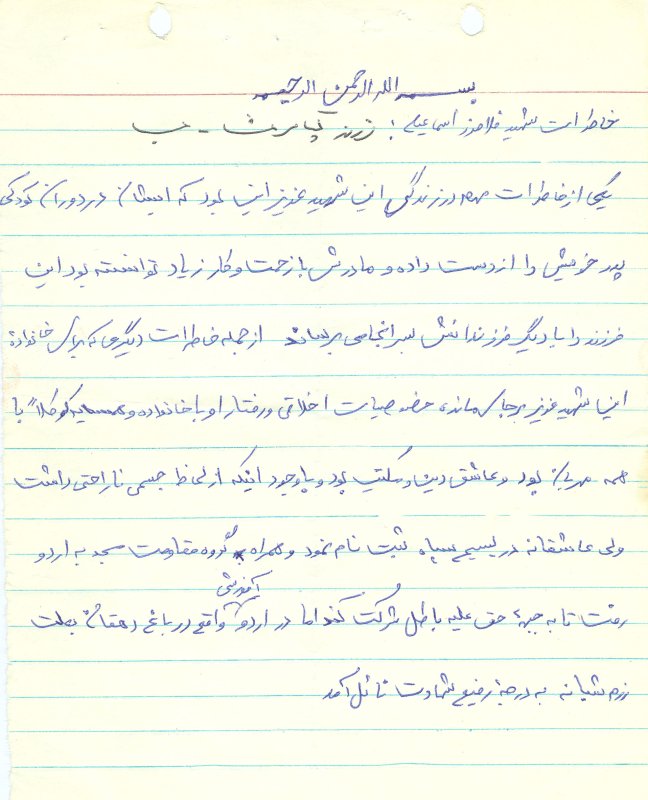 بسم الله الرحمن الرحیم
خاطرات شهید غلامرضا اسماعیلی : فرزند
یکی از خاطرات مهم در زندگی این شهید عزیز این بود که ایشان در دوران کودکی
پدر خویش را از دست داده و مادرش با زحمت و کار زیاد توانسته بود این
فرزند را با دیگر فرزندانش بسر انجامی برساند از جمله خاطرات دیگری که برای خانواده
این شهید عزیز برجای مانده خصوصیات اخلاقی و رفتار او با خانواده و همسایه که کلاً با
همه مهربان بود و عاشق دین و مکتب بود و با وجود اینکه از لحاظ جسمی ناراحتی داشت
ولی عاشقانه در بسیج سپاه ثبت نام نمود و همراه گروه مقاومت مسجد به اردو
رفت تا به جبهۀ حق علیه باطل شرکت کند اما در اردوی آموزشی واقع در باغ دهقان بعلت
رزم شبانه به درجۀ رفیع شهادت نائل آمد